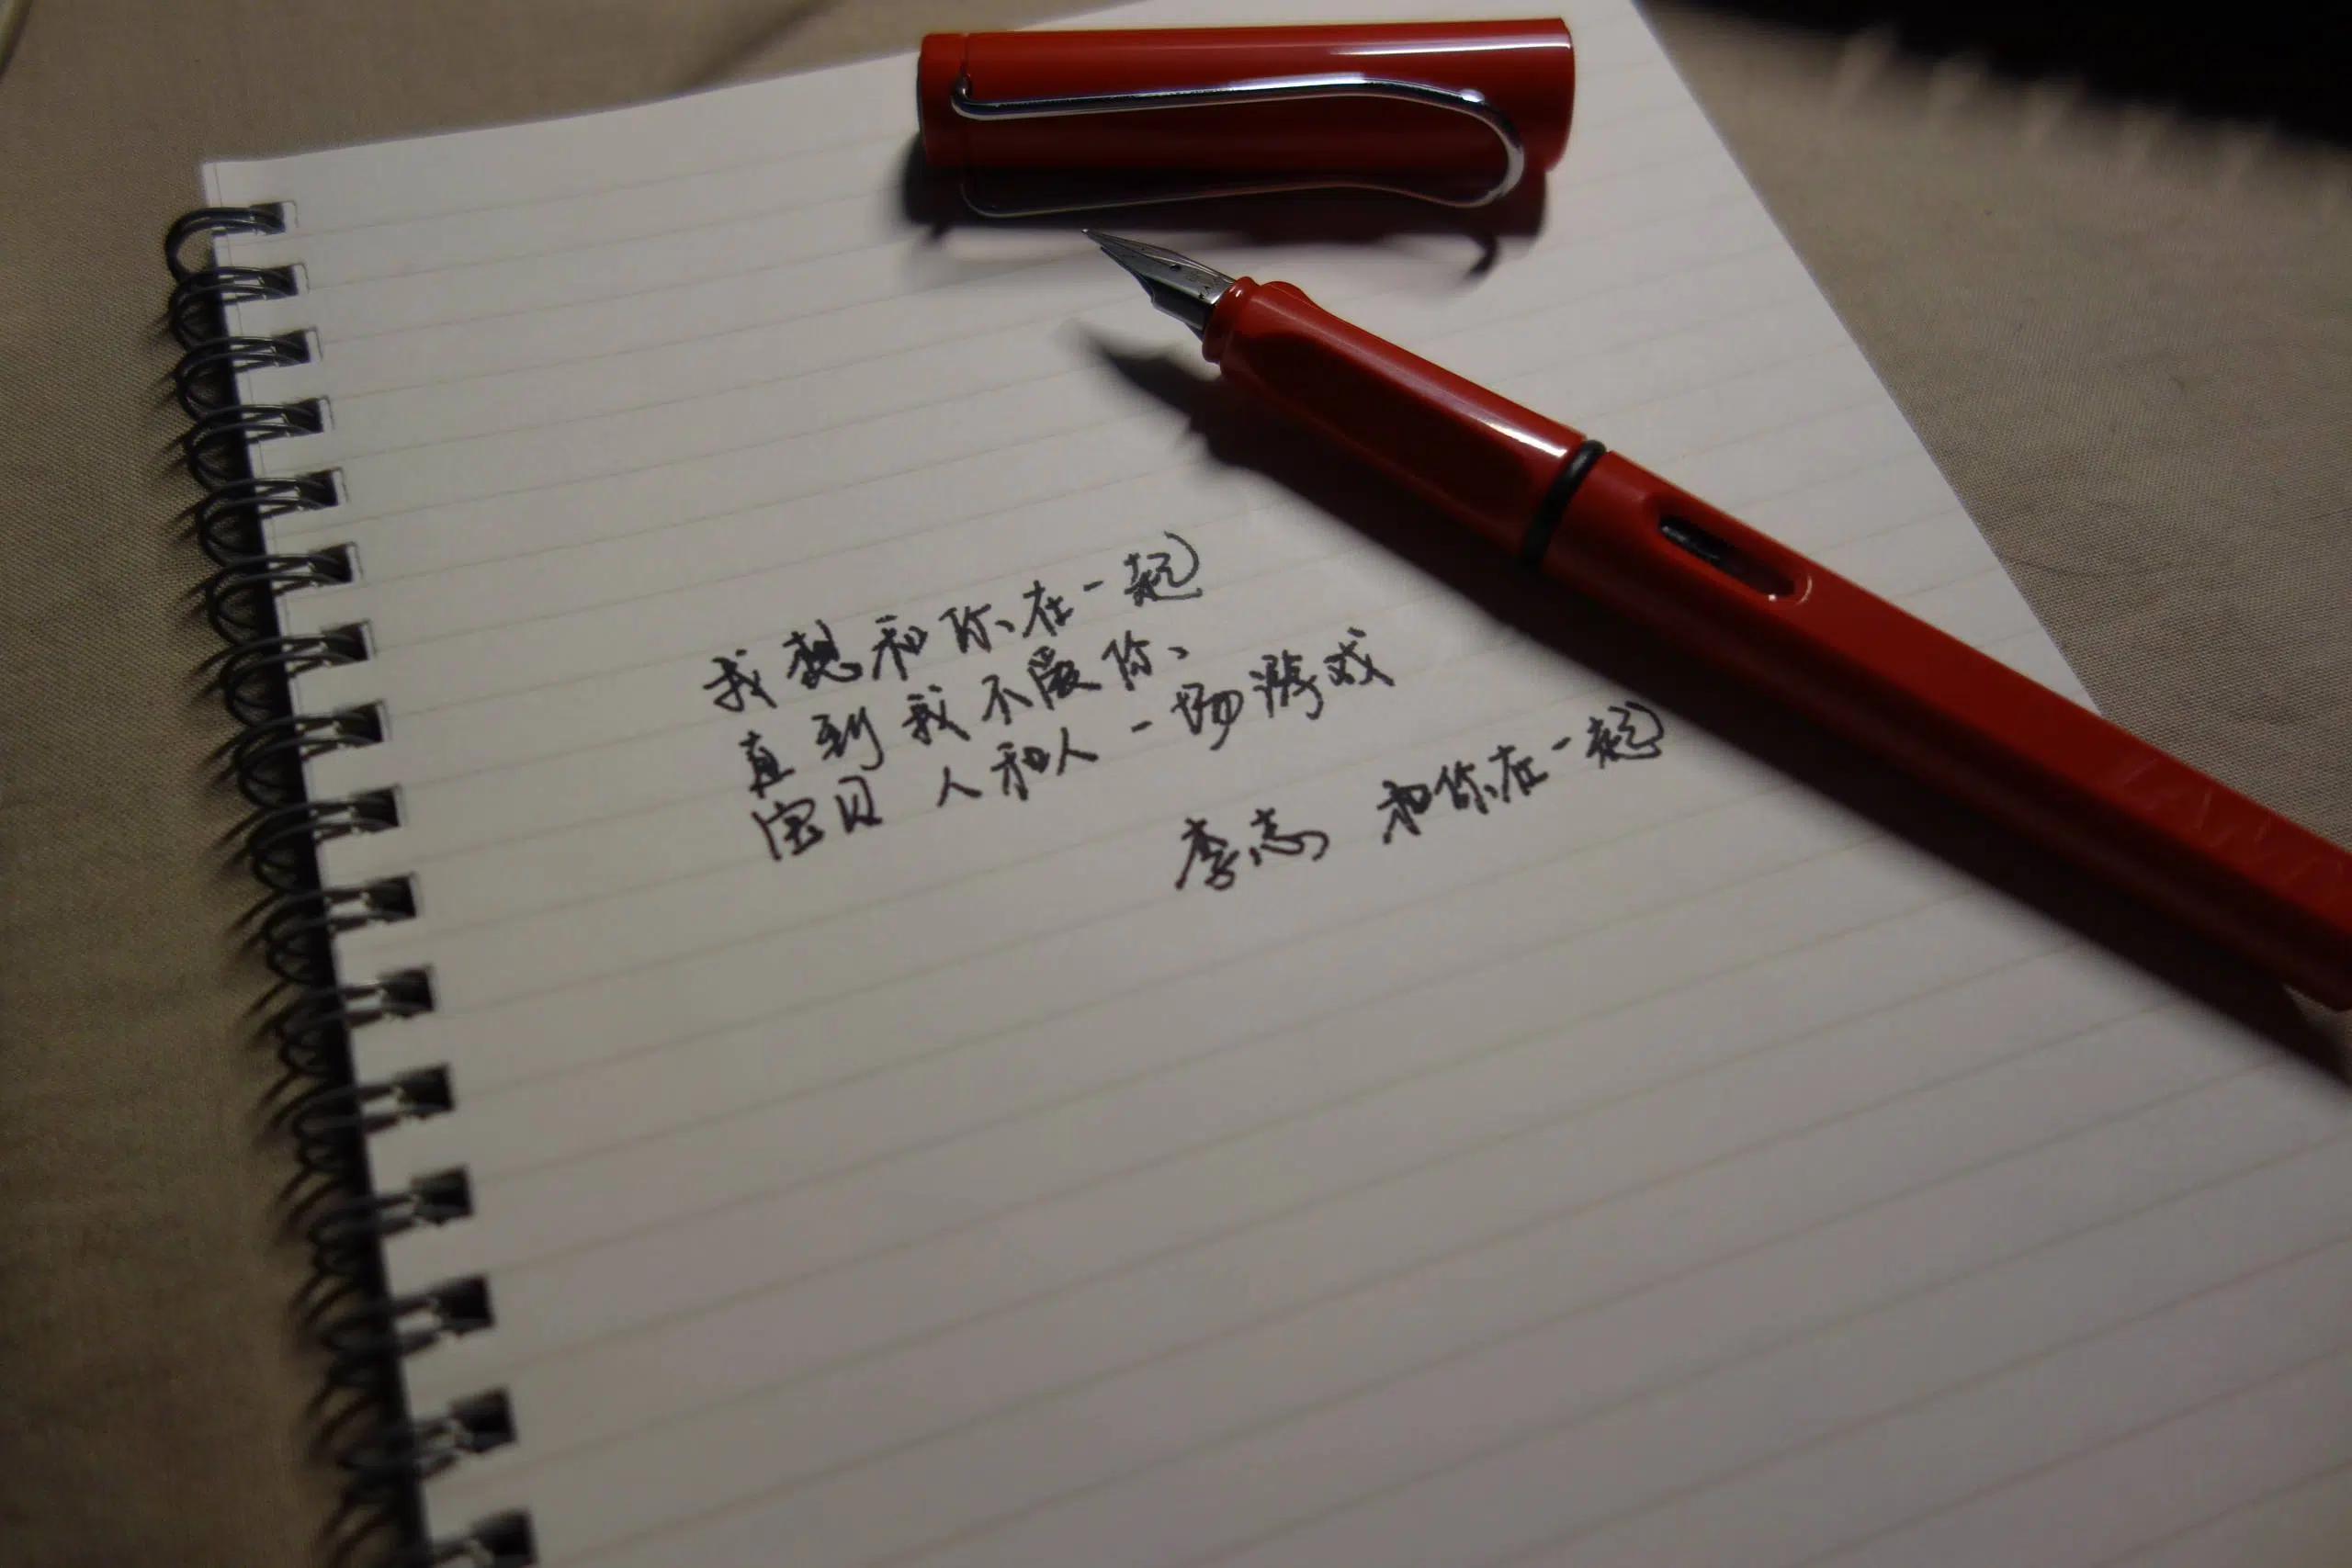 我想和你在一起
直到我不爱你、
宝贝 人和人 一场游戏
李志 和你在一起